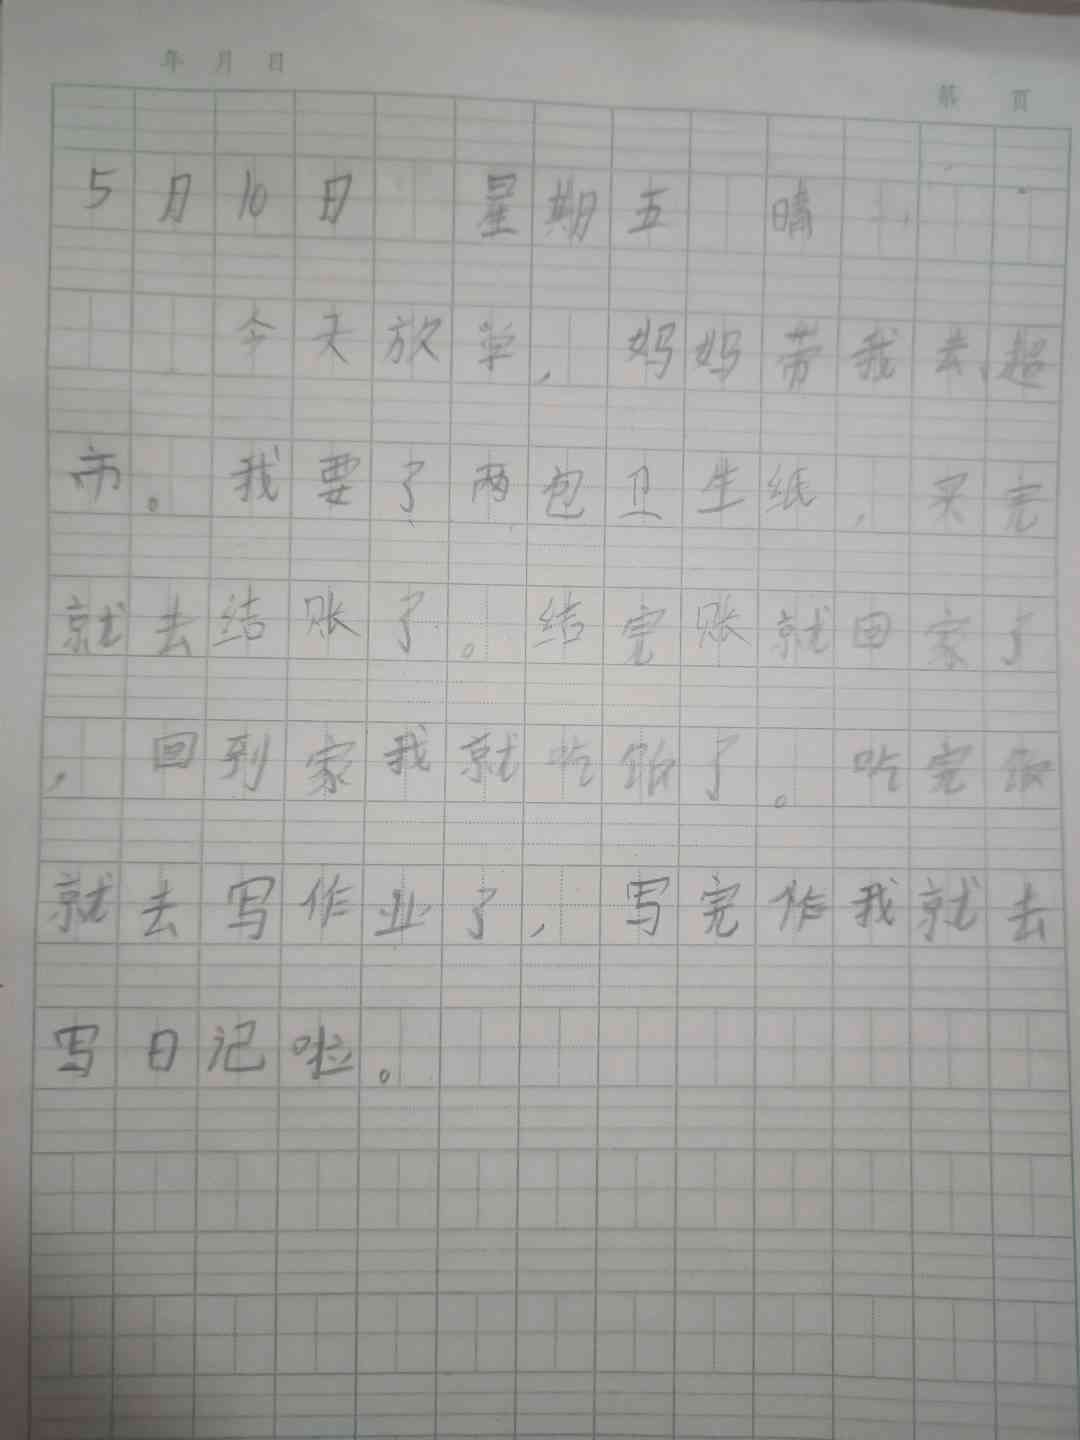 年 月 日
第 页
5月10日 星期五 晴
今天放学,妈妈带我去超
市。我要了两包卫生纸,买完
就去结账了。结完账就回家了
,回到家我就吃饭了。吃完饭
就去写作业了,写完作我就去
写日记啦。